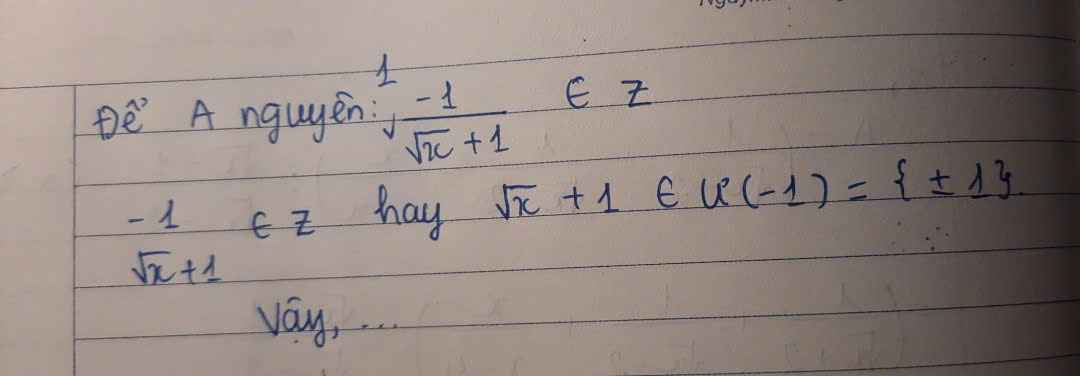 Để A nguyên: 1 -1/(√x + 1) ∈ Z
-1/(√x + 1) ∈ Z hay √x + 1 ∈ Ư(-1) = {±1}.
Vậy, ...